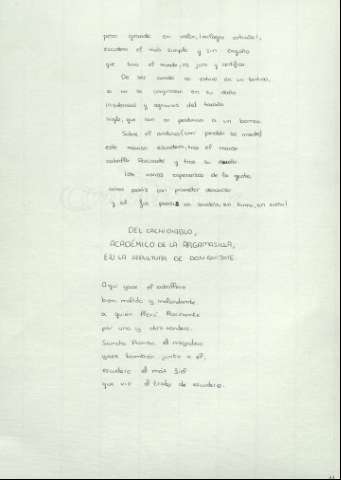 pero grande en valor, ¡milagro extraño!,
escudero el más simple y sin engaño
que tuvo el mundo, os juro y certifico.
De ser conde no estuvo en un tantico,
si no se conjuraran en su daño
insolencias y agravios del tacaño
siglo, que aun no perdonan a un borrico.
Sobre él anduvo (con perdón se miente)
este manso escudero, tras el manso
caballo Rocinante y tras su dueño.
¡Oh vanas esperanzas de la gente,
cómo pasáis con prometer descanso
y al fin paráis en sombra, en humo, en sueño!
DEL CACHIDIABLO,
ACADÉMICO DE LA ARGAMASILLA,
EN LA SEPULTURA DE DON QUIJOTE
Aquí yace el caballero
bien molido y malandante
a quien llevó Rocinante
por uno y otro sendero.
Sancho Panza el majadero
yace también junto a él,
escudero el más fiel
que vio el trato de escudero.